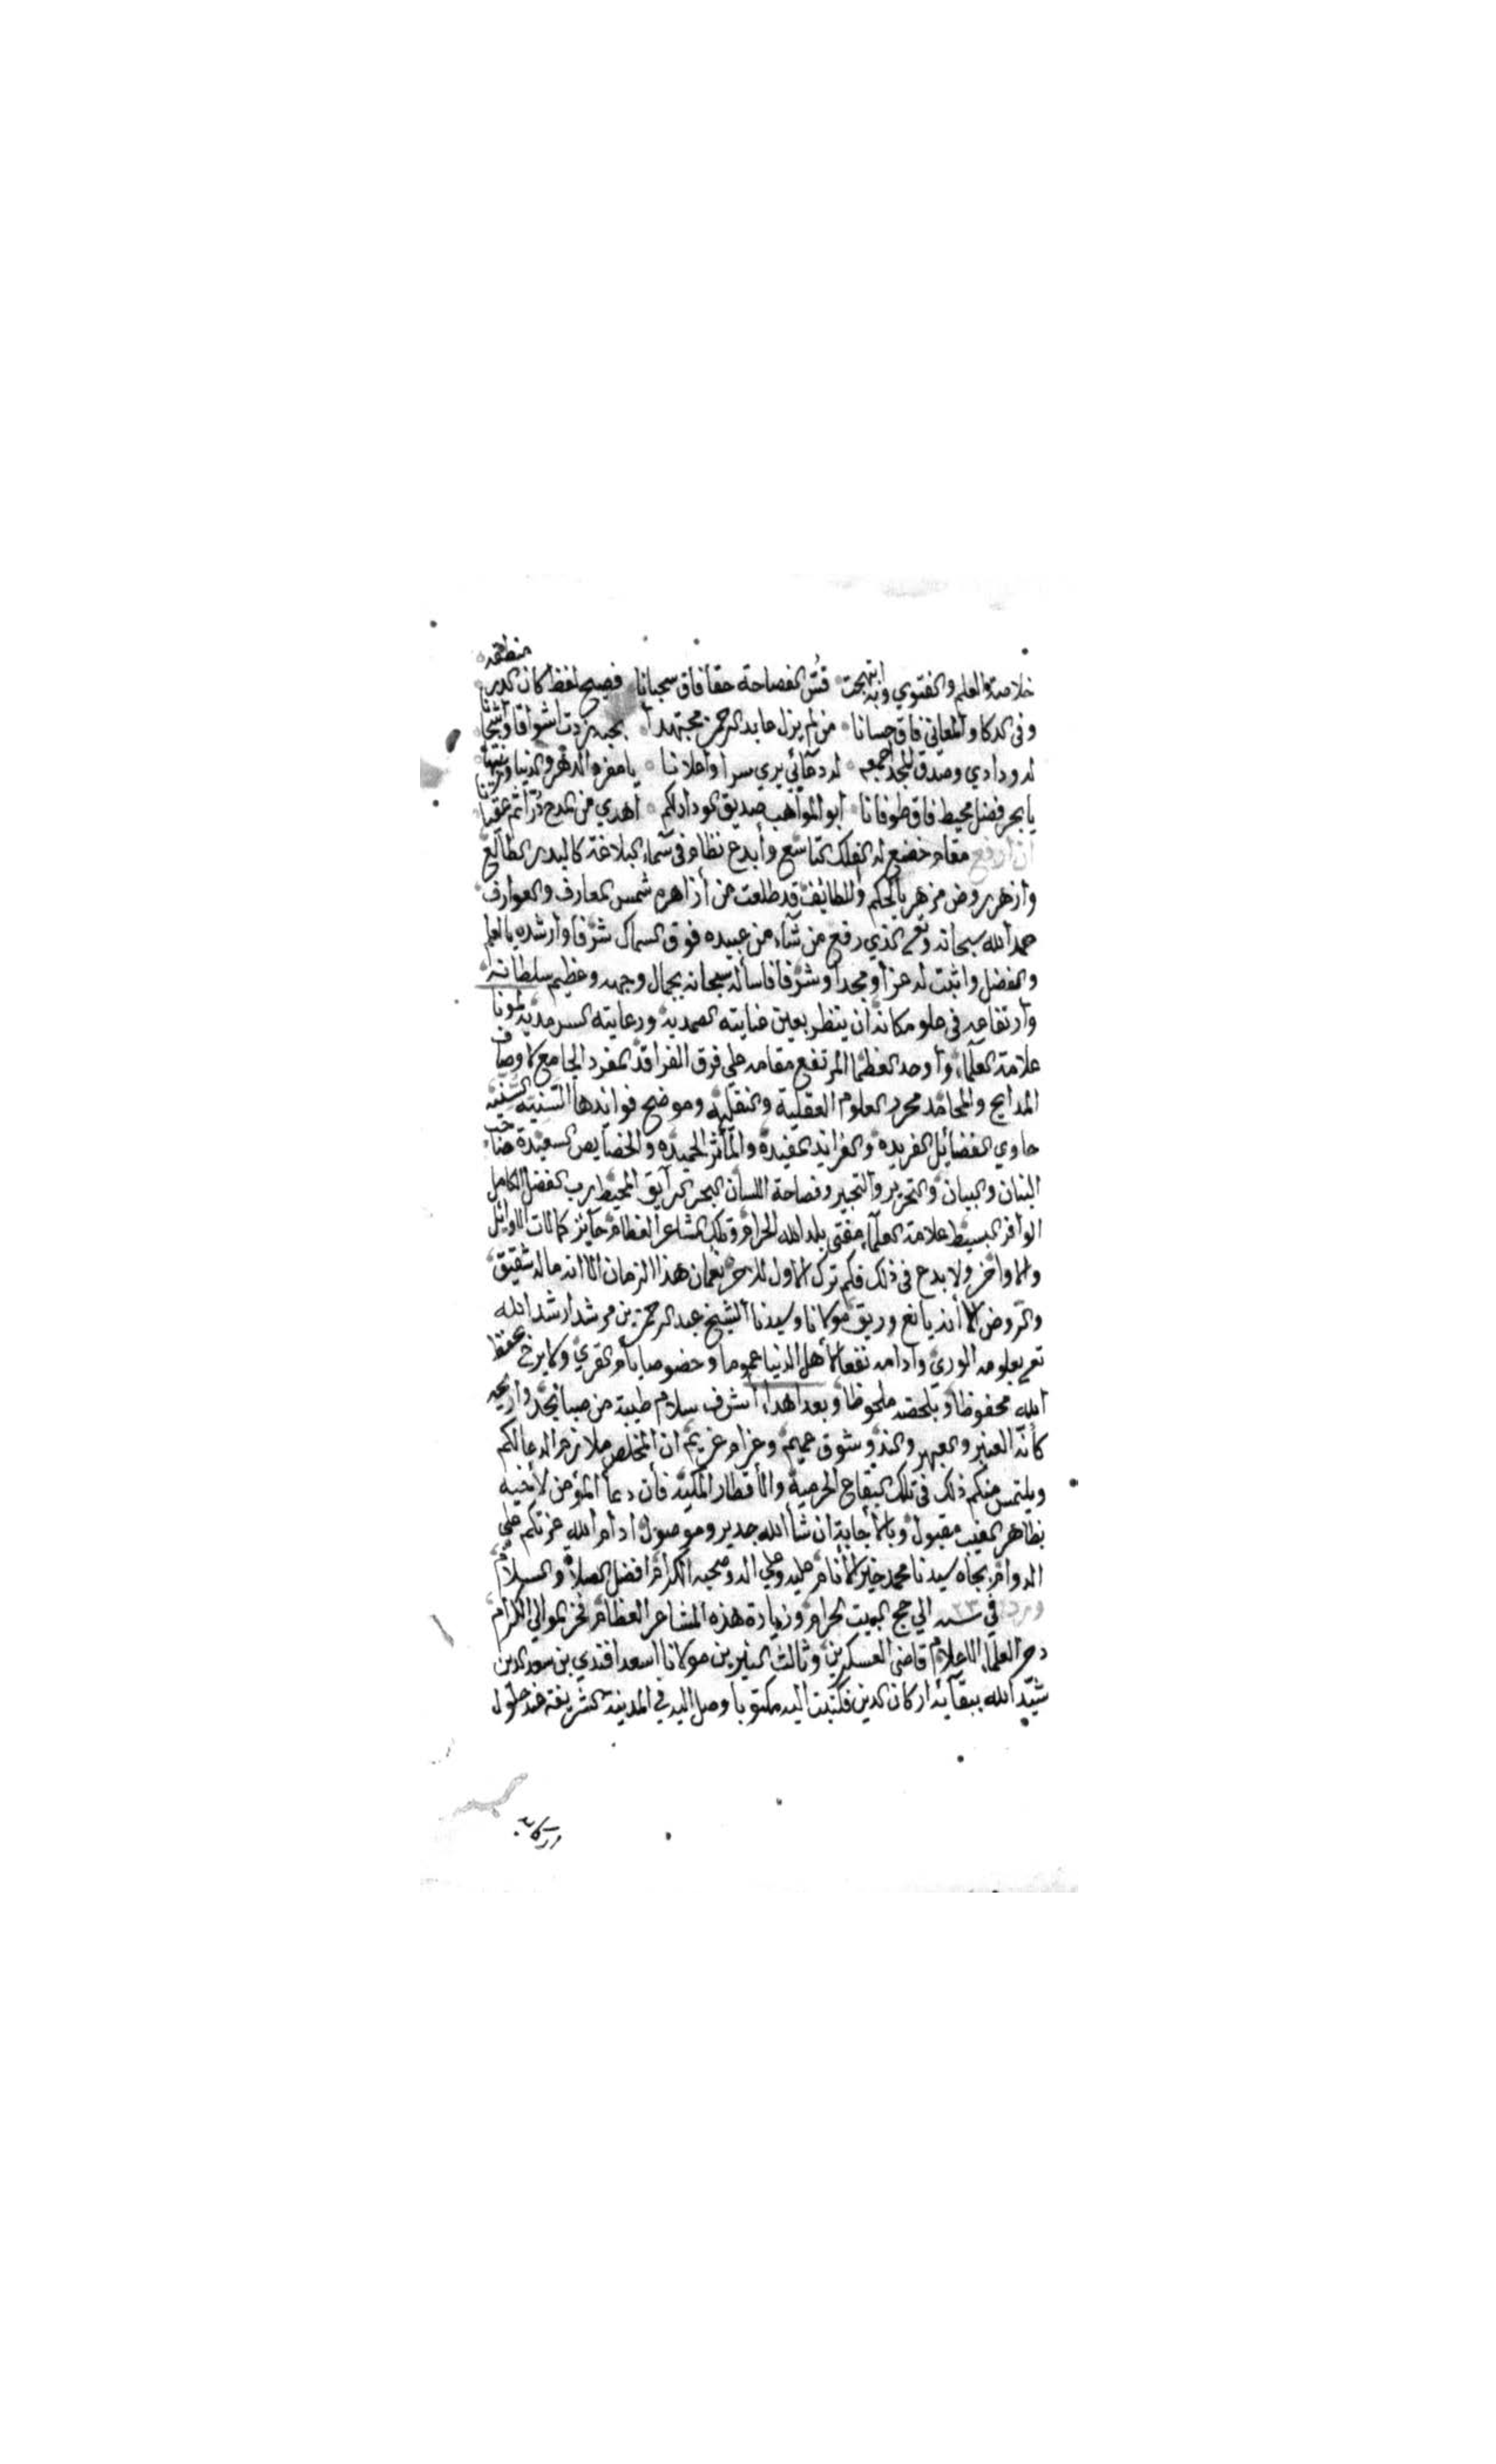 خلاصة العلم والفتوى وبه ابتهجت قس الفصاحة حقا فاق سحبانا فصيح لفظ كان الدر منطقه
وفي الذكا والمعاني فاق حسانا من لم يزل عابد الرحمن مجتهدا بحبه زدت اشواقا واشجانا
له ودادي وصدق المجد اجمعه له دعائي يرى سرا واعلانا يا مفرد الدهر والدنيا وزينتها
يا بحر فضل محيط فاق طوفانا ابو المواهب صديق الودادلكم اهدى من المدح درا ثم عقيانا
ان ارفع مقام خضع له الفلك التاسع وأبدع نظام في سماء البلاغة كالبدر الطالع
وازهر روض مزهر بالحكم واللطائف قد طلعت من أزاهره شمس المعارف والعوارف
حمد الله سبحانه وتعم الذي رفع من شاء من عبيده فوق السماك شرفا وأرشده بالعلم
والفضل واثبت له عزا ومجدا وشرفا فاساله سبحانه بجمال وجهه وعظيم سلطانه
وارتفاعه في علو مكانه ان ينظر بعين عنايته الصمدية ورعايته السرمدية لمولانا
علامة العلماء وأوحد العظما المرتفع مقامه على فرق الفراقد المفرد الجامع لاوصاف
المدايح والمحامد محرر العلوم العقلية والنقلية وموضح فوايدها السنية السنية
حاوي الفضائل الفريده والفرايد المفيدة والمآثر الحميده والخصايص السعيدة صاحب
البنان والبيان والتحرير والتحبير وفصاحة اللسان البحر الرايق المحيط رب الفضل الكامل
الوافر البسيط علامة العلماء مفتي بلد الله الحرام وتلك المشاعر العظام حايز كمالات الاوائل
والاواخر ولا بدع في ذلك فكم ترك الاول للاخر نعمان هذا الزمان الا انه ماله شقيق
والروض الا أنه يانع وريق مولانا وسيدنا الشيخ عبد الرحمن بن مرشد ارشد الله
تعم بعلومه الورى وادامه نفعا لأهل الدنيا عموما وخصوصيا بأم القرى ولا برح بحفظ
الله محفوظا وبلحضه ملحوظا وبعد اهداء اشرف سلام طيبة من صبا نجد واريجه
كأنه العنبر والعبهر والند وشوق حميم وغرام غريم ان المخلص ملازم الدعا لكم
ويلتمس منكم ذلك في تلك البقاع الحرمية والأقطار المكية فأن دعأ المؤمن لأخيه
بظاهر الغيب مقبول وبالأجابة ان شأ الله جدير وموصول أدام الله عزتكم على
الدوام بجاه سيدنا محمد خير الأنام عليه وعلى اله وصحبه الكرام افضل الصلاة والسلام
في سنه الى حج البيت الحرام وزيارة هذه المشاعر العظام فخر الموالي الكرام
العلماء الاعلام قاضي العسكرين وثالث النيرين مولانا اسعد افندي بن سعد الدين
شيد الله ببقآئه اركان الدين فكتبت اليه مكتوبا وصل اليه في المدينة الشريفة عند حلول
ركابه